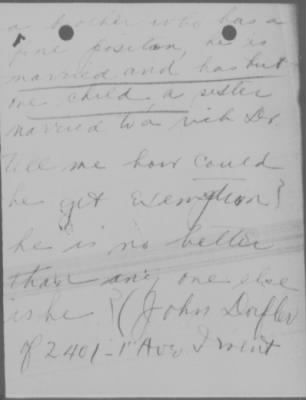 a brother who has a
fine position, he is
married and has but
one child a sister
married to a rich Dr.
Tell me how could
he get exemption?
he is no better
than any one else
is he? (John Dorfler
of 2401-1" Ave I went